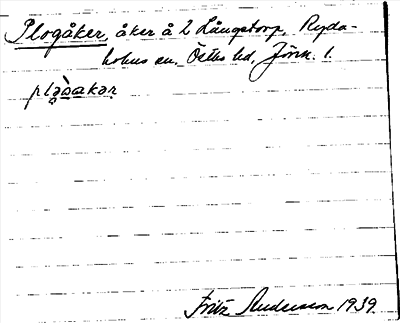 Plogåker, åker å 2 Långstorp, Ryda-
holms sn. Östbo hd, Jönk. l.
plɷ̀akər
Fritz Andersson 1939.